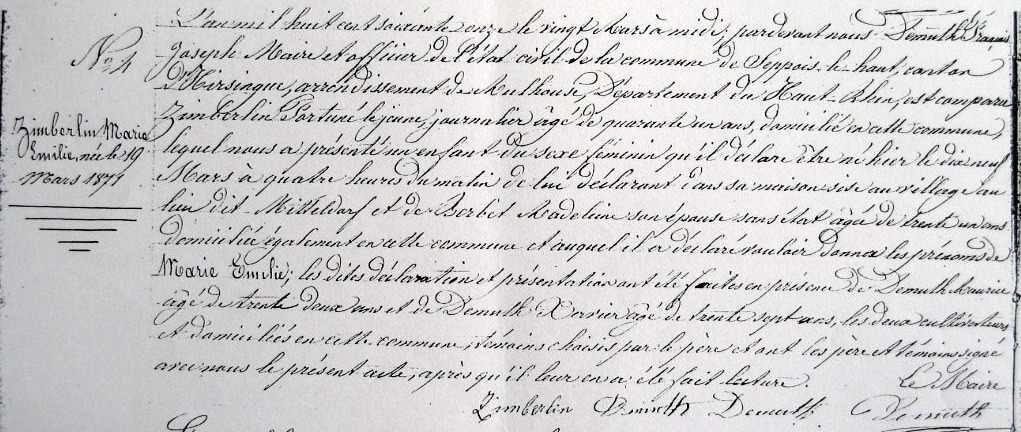 N.o 4
Zimberlin Marie
Emilie, née le 19
Mars 1871
L'an mil huit cent soixante onze le vingt Mars à midi, pardevant nous Demuth François
Joseph Maire et officier de l'état civil de la commune de Seppois-le-haut, canton
d'Hirsingue, arrondissement de Mulhouse, Département du Haut-Rhin, est comparu
Zimberlin Fortuné le jeune, journalier âgé de quarante un ans, domicilié en cette commune,
lequel nous a présenté un enfant du sexe féminin qu'il déclare être né hier le dix neuf
Mars à quatre heures du matin de lui déclarant dans sa maison sise au village au
lieu dit Mitteldorf et de Berbet Madeleine son épouse sans état âgée de trente un ans
domiciliée également en cette commune et auquel il a déclaré vouloir donner les prénoms de
Marie Emilie; les dites déclaration et présentation ont été faites en présence de Demuth Maurice
âgé de trente deux ans et de Demuth Xavier âgé de trente sept ans, les deux cultivateurs
et domiciliés en cette commune, témoins choisis par le père et ont les père et témoins signé
avec nous le présent acte, après qu'il leur en a été fait lecture. Le Maire
Zimberlin Demuth Demuth Demuth